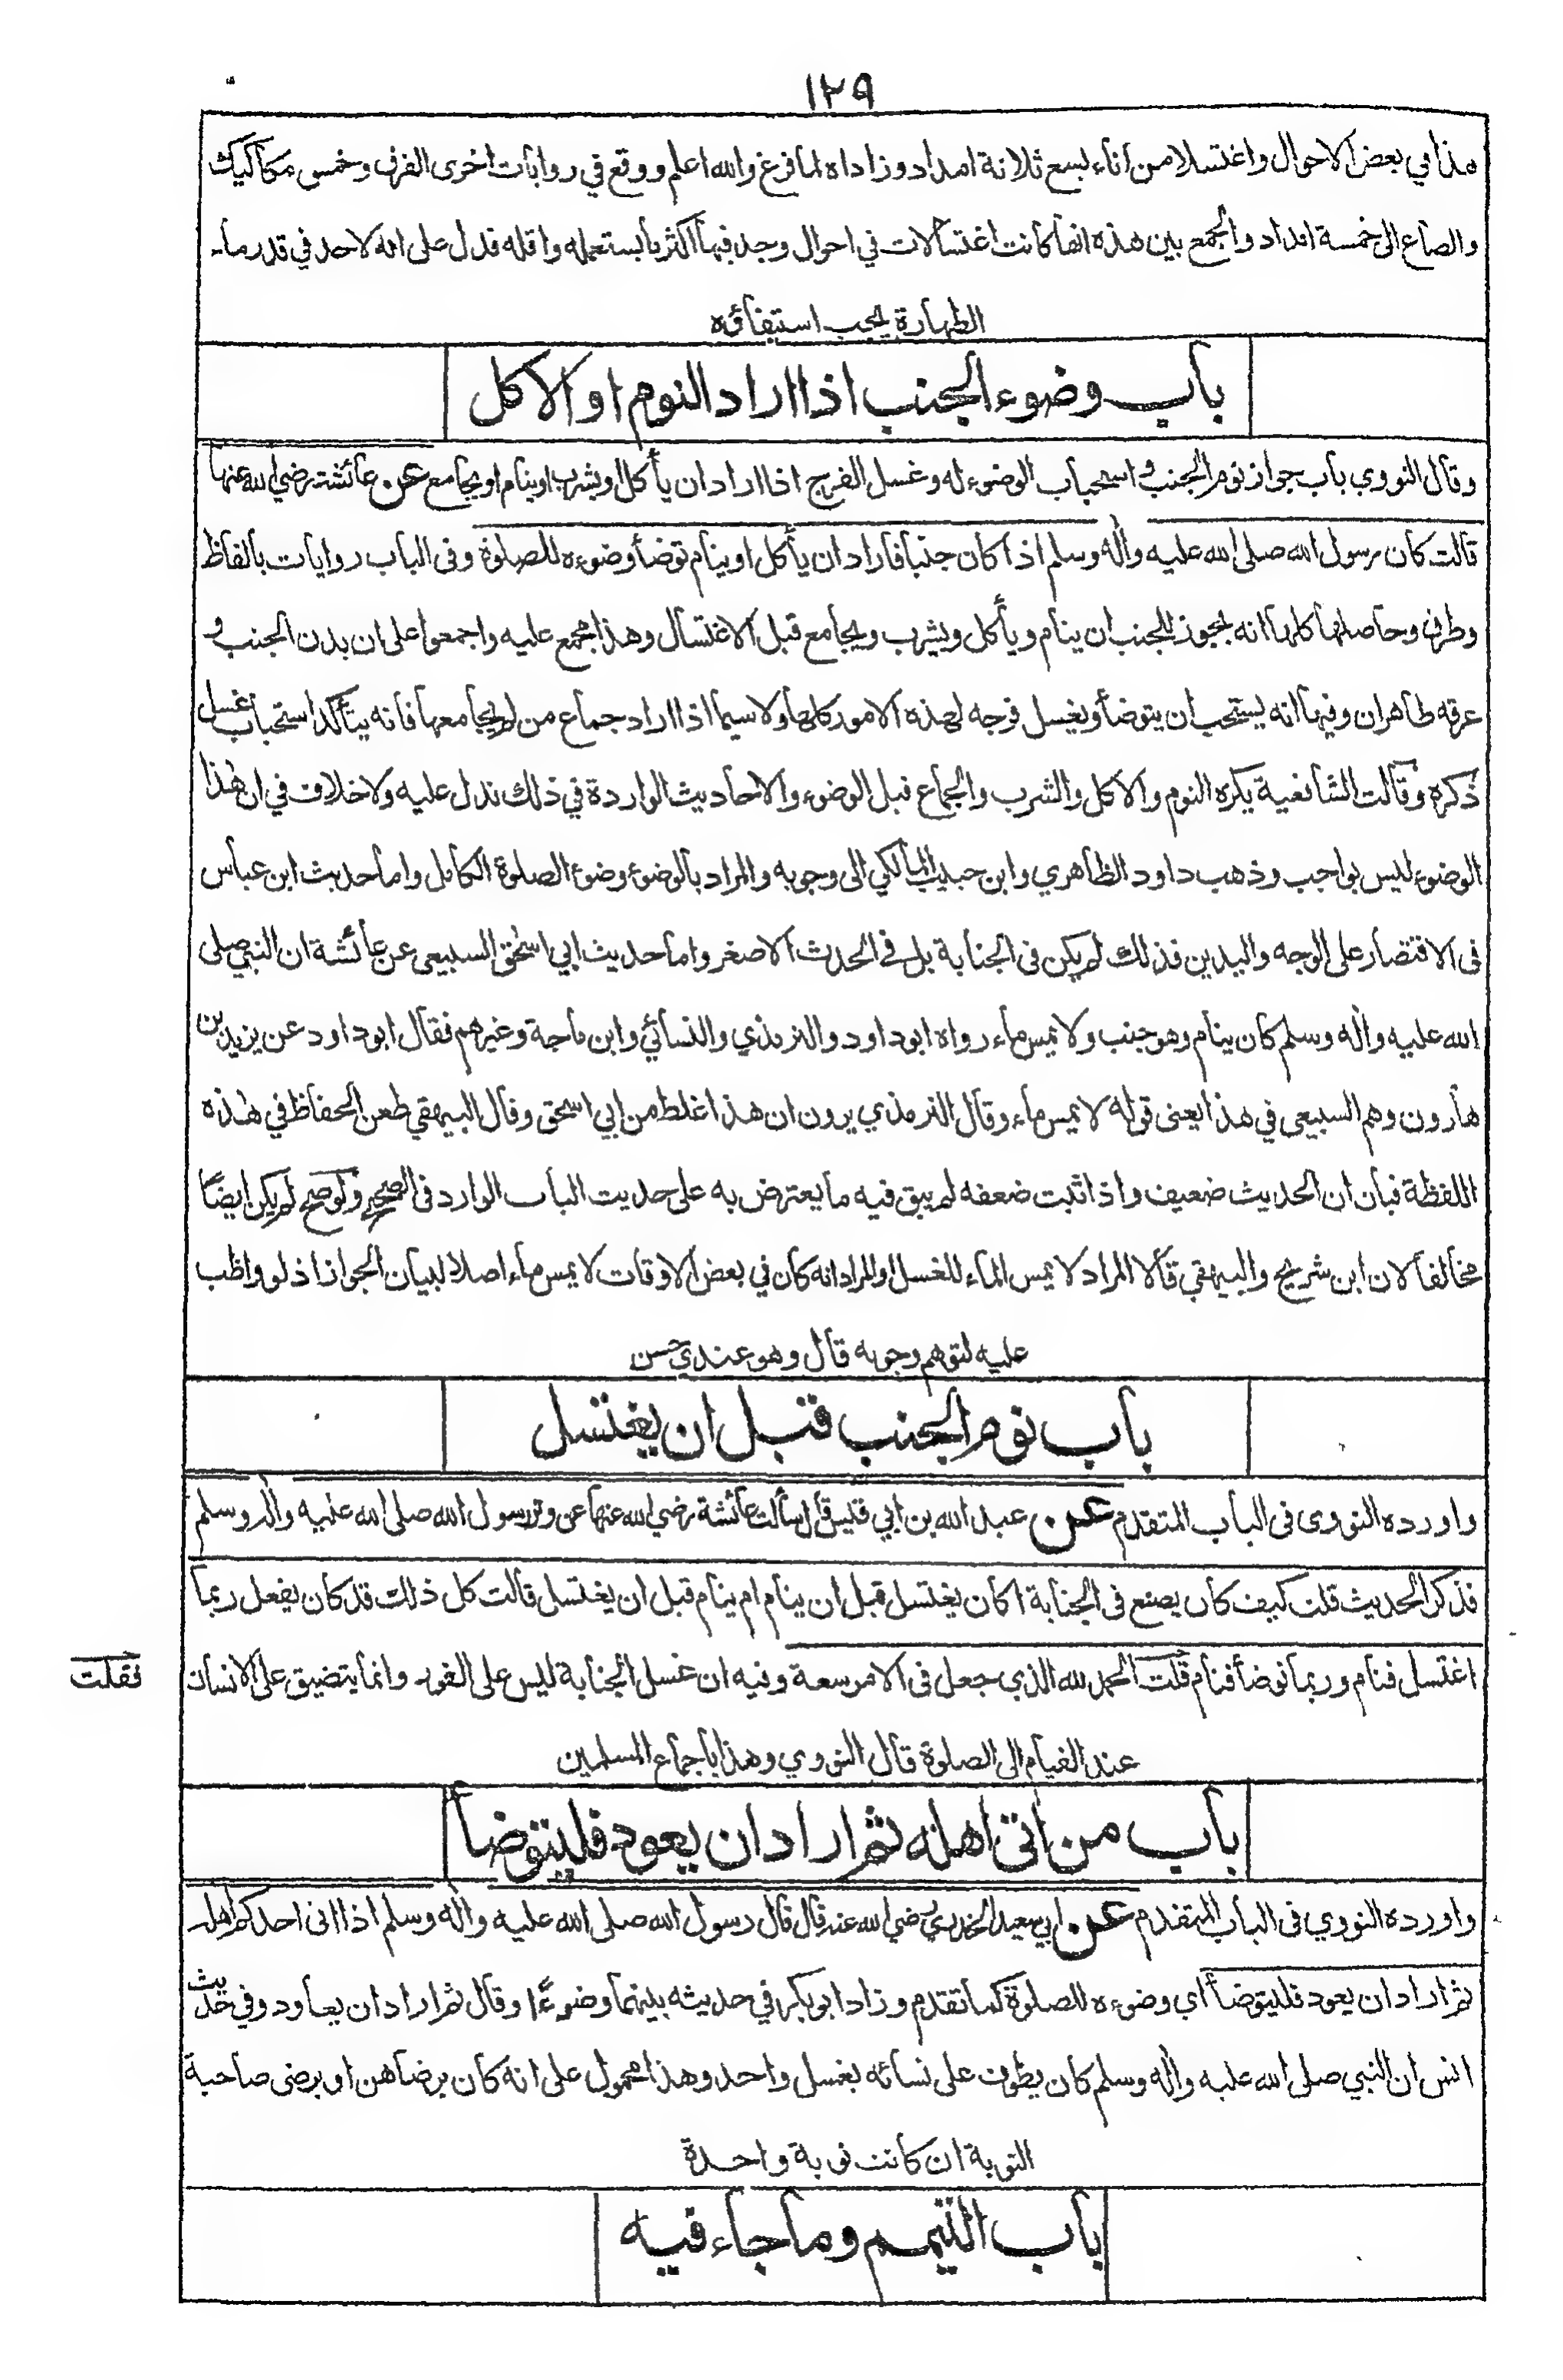 ١٢٩
هذا في بعض الاحوال واغتسلا من اناء يسع ثلاثة امداد وزاداه لما فرغ والله اعلم ووقع في روايات اخرى الفرق وخمس مكاكيك
والصاع الى خمسة امداد والجمع بين هذه انها كانت اغتسالات في احوال وجد فيها اكثر ما يستعمله واقله فدل على انه لا حد في قدر ماء
الطهارة يجب استيفاؤه
باب وضوء الجنب اذا اراد النوم او الاكل
وقال النووي باب جواز نوم الجنب و استحباب الوضوء له وغسل الفرج اذا اراد ان يأكل او يشرب او ينام او يجامع عن عائشة رضي الله عنها
قالت كان رسول الله صلى الله عليه واله وسلم اذا كان جنبا فاراد ان يأكل او ينام توضأ وضوءه للصلوة وفى الباب روايات بالفاظ
وطرق وحاصلها كلها انه يجوز للجنب ان ينام ويأكل ويشرب ويجامع قبل الاغتسال وهذا مجمع عليه واجمعوا على ان بدن الجنب و
عرقه طاهران وفيها انه يستحب ان يتوضأ ويغسل فرجه لهذه الامور كلها ولا سيما اذا اراد جماع من لم يجامعها فانه يتأكد استحباب غسل
ذكره وقالت الشافعية يكره النوم والاكل والشرب والجماع قبل الوضوء والاحاديث الواردة في ذلك تدل عليه ولا خلاف في ان هذا
الوضوء ليس بواجب وذهب داود الظاهري وابن حبيب المالكي الى وجوبه والمراد بالوضوء وضوء الصلوة الكامل واما حديث ابن عباس
فى الاقتصار على الوجه واليدين فذلك لم يكن فى الجنابة بل في الحدث الاصغر واما حديث ابي اسحق السبيعى عن عائشة ان النبي صلى
الله عليه واله وسلم كان ينام وهو جنب ولا يمس ماء رواه ابو داود والترمذي والنسائي وابن ماجة وغيرهم فقال ابو داود عن يزيد بن
هارون وهم السبيعى في هذا يعنى قوله لا يمس ماء وقال الترمذي يرون ان هذا غلط من ابي اسحق وقال البيهقي طعن الحفاظ في هذه
اللفظة فبان ان الحديث ضعيف واذا ثبت ضعفه لم يبق فيه ما يعترض به على حديث الباب الوارد فى الصحيح ولو صح لم يكن ايضا
مخالفا لان ابن شريح والبيهقي قالا المراد لا يمس الماء للغسل او المراد انه كان في بعض الاوقات لا يمس ماء اصلا لبيان الجواز اذ لو واظب
عليه لتوهم وجوبه قال وهو عندي حسن
باب نوم الجنب قبل ان يغتسل
واورده النووى فى الباب المتقدم عن عبد الله بن ابي قيس قال سألت عائشة رضي الله عنها عن وتر رسول الله صلى الله عليه واله وسلم
فذكر الحديث قلت كيف كان يصنع فى الجنابة اكان يغتسل قبل ان ينام ام ينام قبل ان يغتسل قالت كل ذلك قد كان يفعل ربما
اغتسل فنام وربما توضأ فنام قلت الحمد لله الذي جعل فى الامر سعة وفيه ان غسل الجنابة ليس على الفور وانما يتضيق على الانسان
فقلت
عند القيام الى الصلوة قال النووي وهذا باجماع المسلمين
باب من اتى اهله ثم اراد ان يعود فليتوضأ
واورده النووي فى الباب المتقدم عن ابي سعيد الخدري رضي الله عنه قال قال رسول الله صلى الله عليه واله وسلم اذا اتى احدكم اهله
ثم اراد ان يعود فليتوضأ اي وضوءه للصلوة كما تقدم وزاد ابو بكر في حديثه بينهما وضوءًا وقال ثم اراد ان يعاود وفي حديث
انس ان النبي صلى الله عليه واله وسلم كان يطوف على نسائه بغسل واحد وهذا محمول على انه كان برضاهن او برضى صاحبة
النوبة ان كانت نوبة واحدة
باب التيمم وما جاء فيه